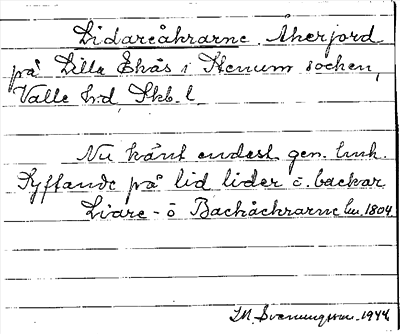 Lidareåkrarne. Åkerjord
på Lilla Ekås i Stenum socken,
Valle h:d, Skb. l.
Nu känt endast gen. lmk.
Syftande på lid lider o. backar
Liare- o Backåkrarne lm. 1804
M. Svenungsson. 1944